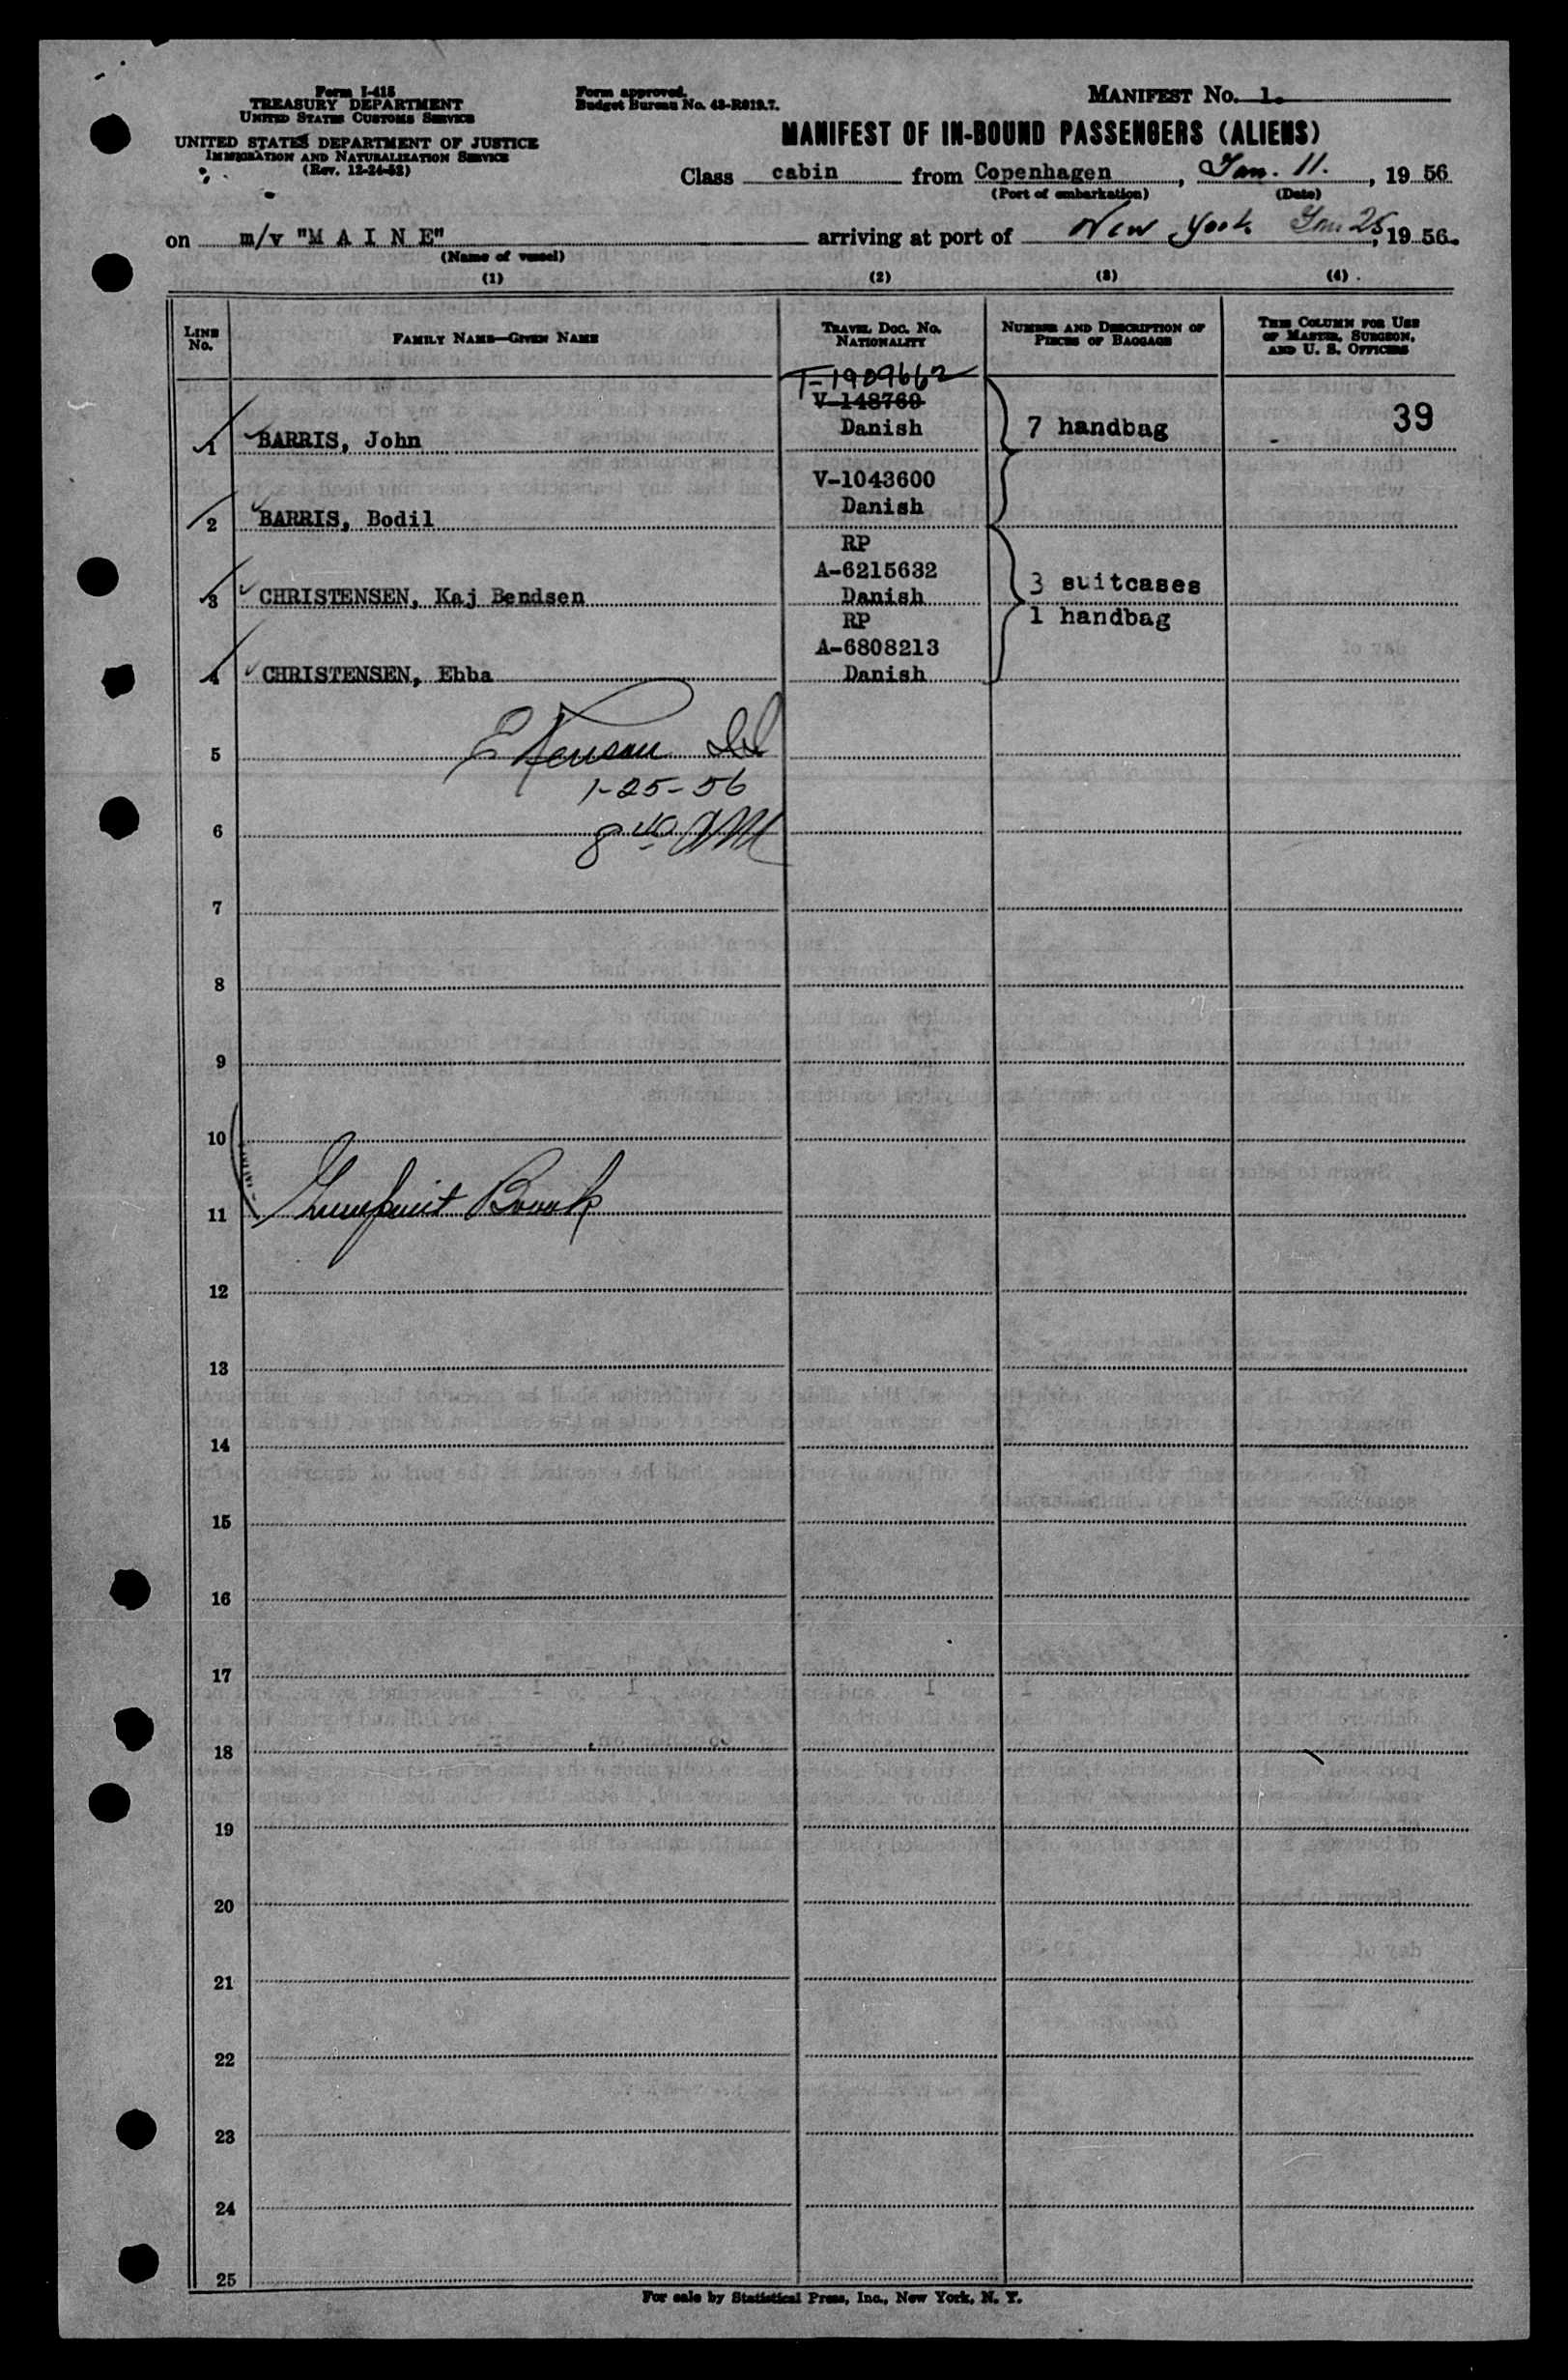 Form I-418
TREASURY DEPARTMENT
UNITED STATES CUSTOMS SERVICE
UNITED STATES DEPARTMENT OF JUSTICE
IMMIGRATION AND NATURALIZATION SERVICE
(Rev. 12-24-52)
Form approved.
Budget Bureau No. 43-R019.7.
MANIFEST No. 1.
MANIFEST OF IN-BOUND PASSENGERS (ALIENS)
Class cabin from Copenhagen, Jan. 11., 19 56
(Port of embarkation) (Date)
on m/v "M A I N E" arriving at port of New York Jan 25, 19 56.
(Name of vessel)
(1) (2) (3) (4)
LINE No. FAMILY NAME—GIVEN NAME TRAVEL DOC. No. NATIONALITY NUMBER AND DESCRIPTION OF PIECES OF BAGGAGE THIS COLUMN FOR USE OF MASTER, SURGEON, AND U. S. OFFICERS
T-1909662
V-148769
1 BARRIS, John Danish 7 handbag 39
V-1043600
2 BARRIS, Bodil Danish
RP
A-6215632 3 suitcases
3 CHRISTENSEN, Kaj Bendsen Danish
RP 1 handbag
A-6808213
4 CHRISTENSEN, Ebba Danish
5
1-25-56
6 8 40 AM
7
8
9
10
11
12
13
14
15
16
17
18
19
20
21
22
23
24
25
For sale by Statistical Press, Inc., New York, N. Y.